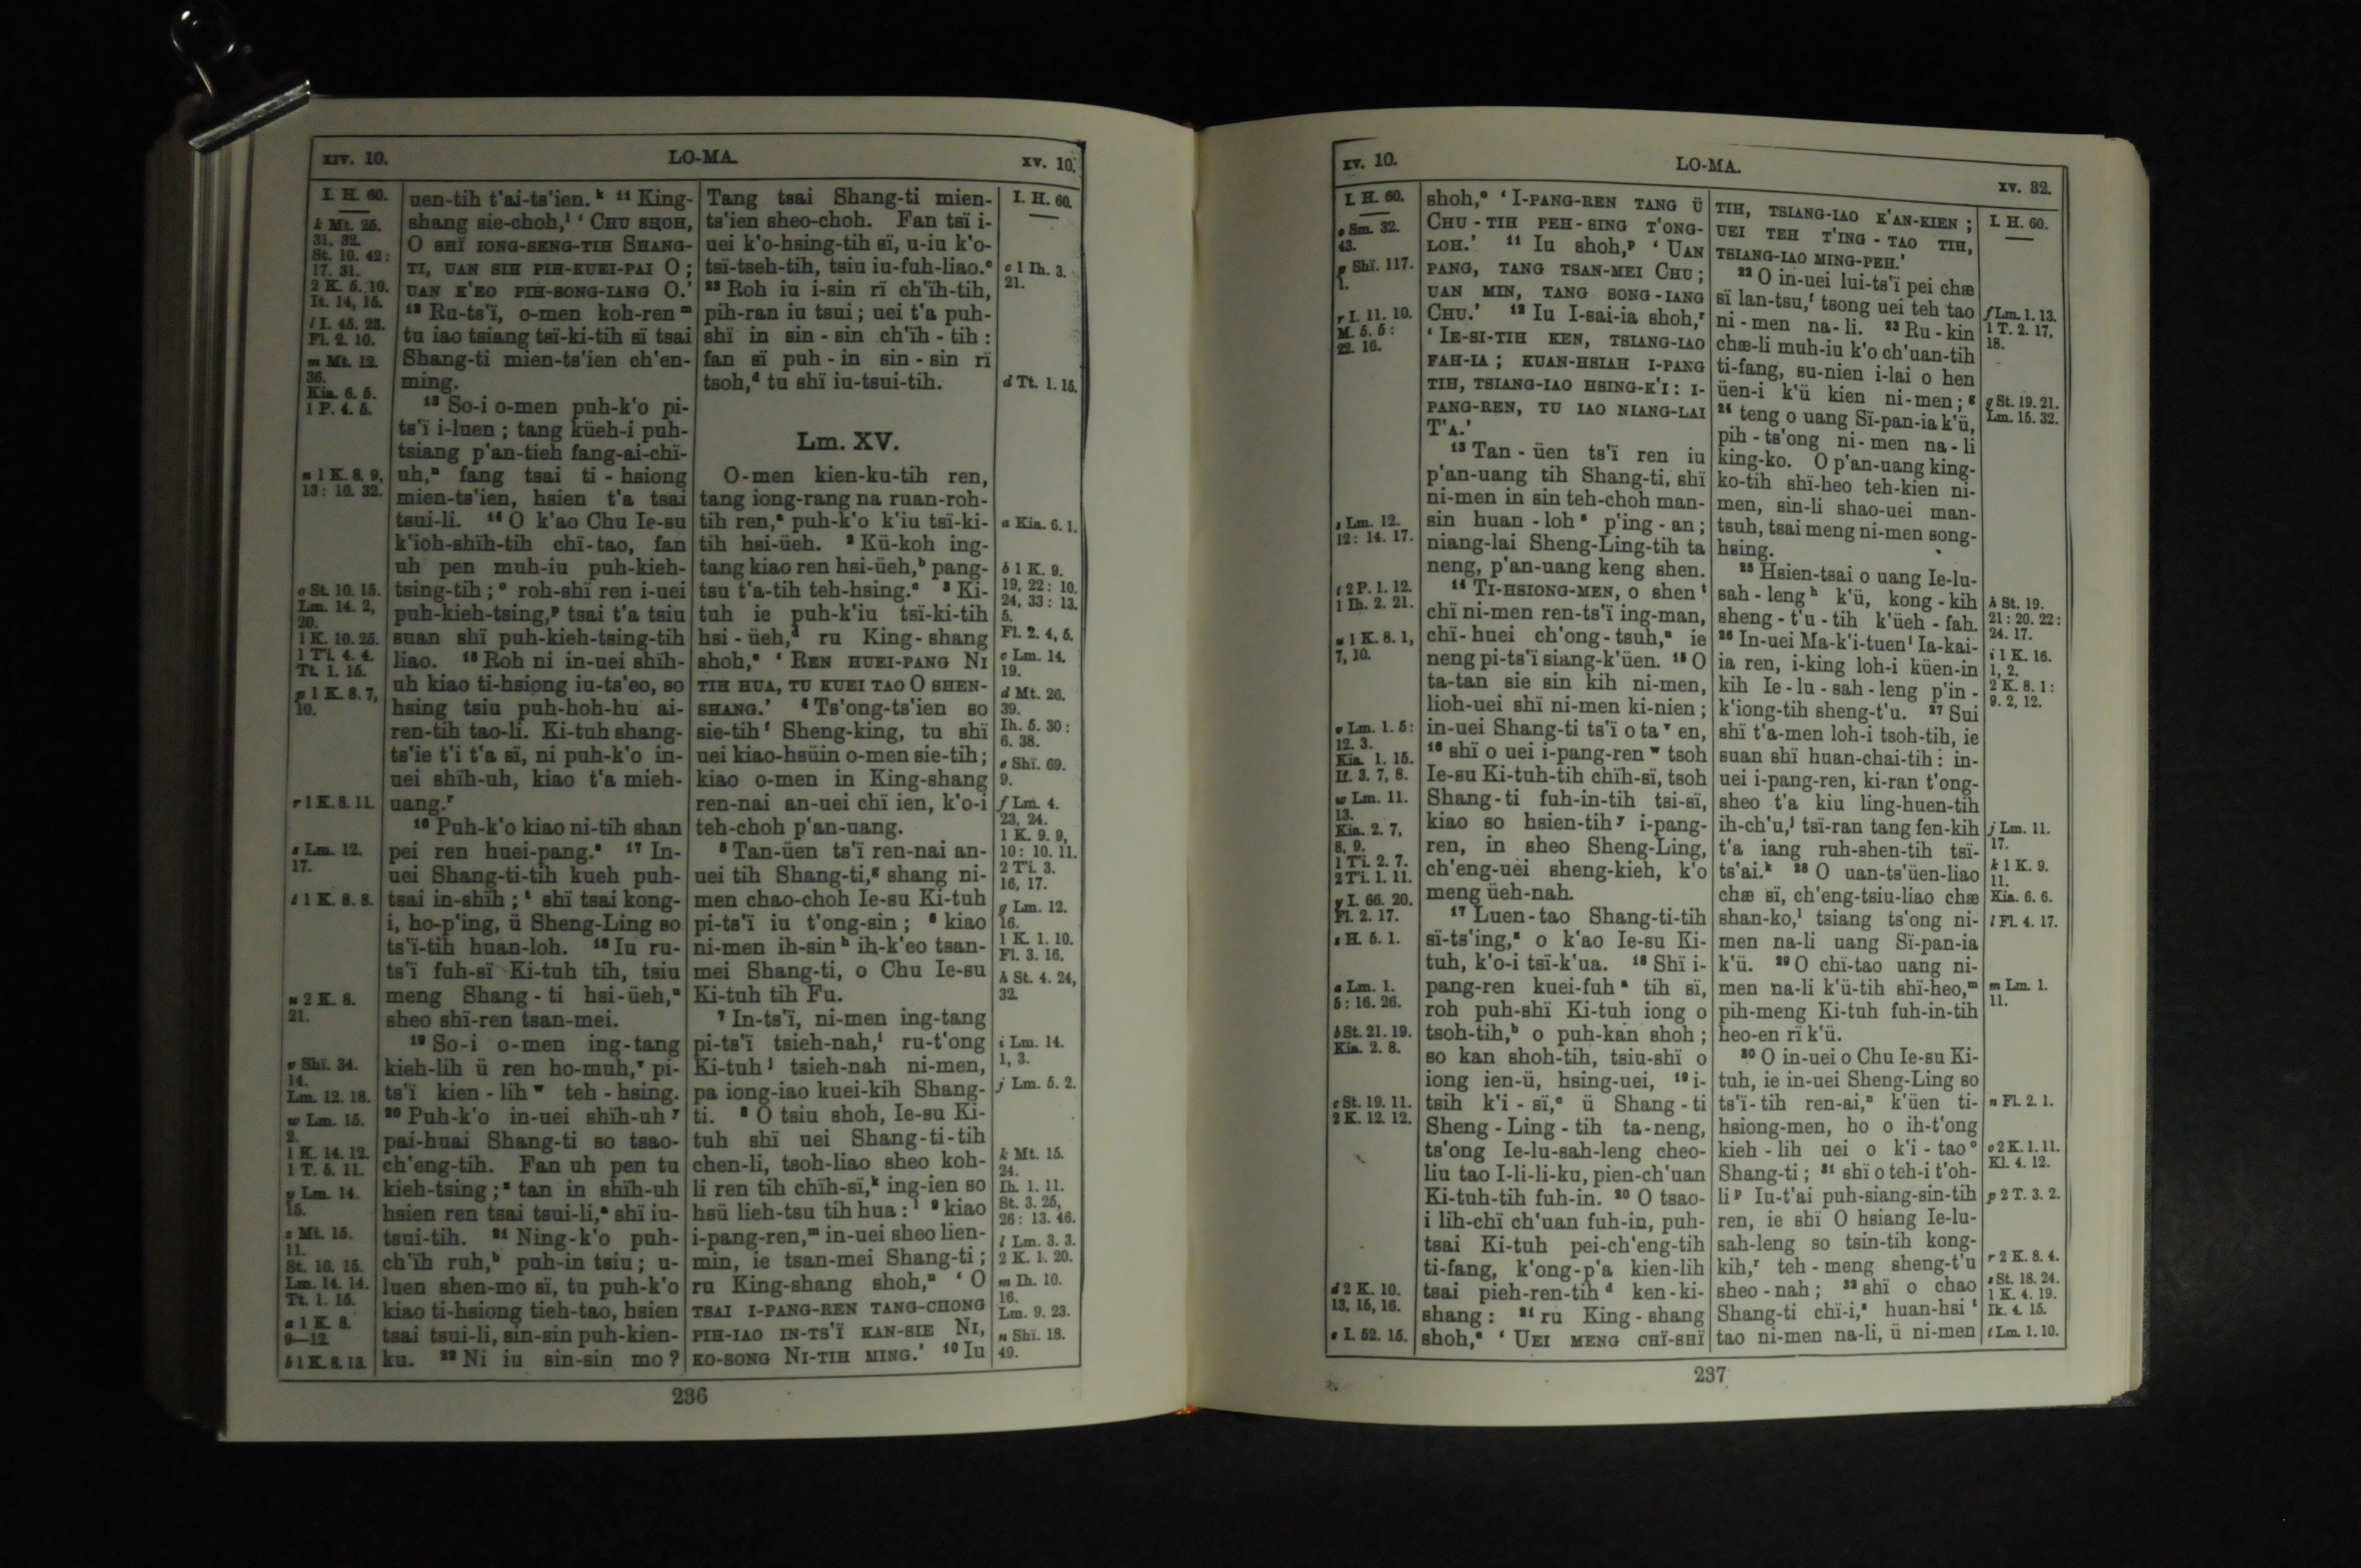 XIV. 10.
LO-MA.
XV. 10.
I. H. 60.
k Mt. 25.
31, 32.
St. 10. 42:
17. 31.
2 K. 5. 10.
It. 14, 15.
l I. 45. 23.
Fl. 2. 10.
m Mt. 12.
36.
Kia. 6. 5.
1 P. 4. 5.
n 1 K. 8. 9,
13: 10. 32.
o St. 10. 15.
Lm. 14. 2,
20.
1 K. 10. 25.
1 Ti. 4. 4.
Tt. 1. 15.
p 1 K. 8. 7,
10.
r 1 K. 8. 11.
s Lm. 12.
17.
t 1 K. 8. 8.
u 2 K. 8.
21.
v Shï. 34.
14.
Lm. 12. 18.
w Lm. 15.
2.
1 K. 14. 12.
1 T. 5. 11.
y Lm. 14.
15.
z Mt. 15.
11.
St. 10. 15.
Lm. 14. 14.
Tt. 1. 15.
a 1 K. 8.
9—12.
b 1 K. 8. 13.
uen-tih t'ai-ts'ien. k 11 King-
shang sie-choh, l ' CHU SHOH,
O SHÏ IONG-SENG-TIH SHANG-
TI, UAN SIH PIH-KUEI-PAI O ;
UAN K'EO PIH-SONG-IANG O.'
12 Ru-ts'ï, o-men koh-ren m
tu iao tsiang tsï-ki-tih sï tsai
Shang-ti mien-ts'ien ch'en-
ming.
13 So-i o-men puh-k'o pi-
ts'ï i-luen ; tang küeh-i puh-
tsiang p'an-tieh fang-ai-chï-
uh, n fang tsai ti - hsiong
mien-ts'ien, hsien t'a tsai
tsui-li. 14 O k'ao Chu Ie-su
k'ioh-shïh-tih chï-tao, fan
uh pen muh-iu puh-kieh-
tsing-tih ; o roh-shï ren i-uei
puh-kieh-tsing, p tsai t'a tsiu
suan shï puh-kieh-tsing-tih
liao. 15 Roh ni in-uei shïh-
uh kiao ti-hsiong iu-ts'eo, so
hsing tsiu puh-hoh-hu ai-
ren-tih tao-li. Ki-tuh shang-
ts'ie t'i t'a sï, ni puh-k'o in-
uei shïh-uh, kiao t'a mieh-
uang. r
16 Puh-k'o kiao ni-tih shan
pei ren huei-pang. s 17 In-
uei Shang-ti-tih kueh puh-
tsai in-shïh ; t shï tsai kong-
i, ho-p'ing, ü Sheng-Ling so
ts'ï-tih huan-loh. 18 Iu ru-
ts'ï fuh-sï Ki-tuh tih, tsiu
meng Shang - ti hsi-üeh, u
sheo shï-ren tsan-mei.
19 So-i o-men ing-tang
kieh-lih ü ren ho-muh, v pi-
ts'ï kien - lih w teh - hsing.
20 Puh-k'o in-uei shïh-uh y
pai-huai Shang-ti so tsao-
ch'eng-tih. Fan uh pen tu
kieh-tsing ; z tan in shïh-uh
hsien ren tsai tsui-li, a shï iu-
tsui-tih. 21 Ning-k'o puh-
ch'ïh ruh, b puh-in tsiu; u-
luen shen-mo sï, tu puh-k'o
kiao ti-hsiong tieh-tao, hsien
tsai tsui-li, sin-sin puh-kien-
ku. 22 Ni iu sin-sin mo ?
Tang tsai Shang-ti mien-
ts'ien sheo-choh. Fan tsï i-
uei k'o-hsing-tih sï, u-iu k'o-
tsï-tseh-tih, tsiu iu-fuh-liao. c
23 Roh iu i-sin rï ch'ïh-tih,
pih-ran iu tsui ; uei t'a puh-
shï in sin - sin ch'ïh - tih :
fan sï puh - in sin - sin rï
tsoh, d tu shï iu-tsui-tih.
Lm. XV.
O-men kien-ku-tih ren,
tang iong-rang na ruan-roh-
tih ren, a puh-k'o k'iu tsï-ki-
tih hsi-üeh. 2 Kü-koh ing-
tang kiao ren hsi-üeh, b pang-
tsu t'a-tih teh-hsing. c 3 Ki-
tuh ie puh-k'iu tsï-ki-tih
hsi - üeh, d ru King - shang
shoh, e ' REN HUEI-PANG NI
TIH HUA, TU KUEI TAO O SHEN-
SHANG.' 4 Ts'ong-ts'ien so
sie-tih f Sheng-king, tu shï
uei kiao-hsüin o-men sie-tih ;
kiao o-men in King-shang
ren-nai an-uei chï ien, k'o-i
teh-choh p'an-uang.
5 Tan-üen ts'ï ren-nai an-
uei tih Shang-ti, g shang ni-
men chao-choh Ie-su Ki-tuh
pi-ts'ï iu t'ong-sin ; 6 kiao
ni-men ih-sin h ih-k'eo tsan-
mei Shang-ti, o Chu Ie-su
Ki-tuh tih Fu.
7 In-ts'ï, ni-men ing-tang
pi-ts'ï tsieh-nah, i ru-t'ong
Ki-tuh j tsieh-nah ni-men,
pa iong-iao kuei-kih Shang-
ti. 8 O tsiu shoh, Ie-su Ki-
tuh shï uei Shang-ti-tih
chen-li, tsoh-liao sheo koh-
li ren tih chïh-sï, k ing-ien so
hsü lieh-tsu tih hua : l 9 kiao
i-pang-ren, m in-uei sheo lien-
min, ie tsan-mei Shang-ti ;
ru King-shang shoh, n ' O
TSAI I-PANG-REN TANG-CHONG
PIH-IAO IN-TS'Ï KAN-SIE NI,
KO-SONG NI-TIH MING.' 10 Iu
I. H. 60.
c 1 Ih. 3.
21.
d Tt. 1. 15.
a Kia. 6. 1.
b 1 K. 9.
19, 22: 10.
24, 33: 13.
5.
Fl. 2. 4, 5.
c Lm. 14.
19.
d Mt. 26.
39.
Ih. 5. 30:
6. 38.
e Shï. 69.
9.
f Lm. 4.
23, 24.
1 K. 9. 9,
10: 10. 11.
2 Ti. 3.
16, 17.
g Lm. 12.
16.
1 K. 1. 10.
Fl. 3. 16.
h St. 4. 24,
32.
i Lm. 14.
1, 3.
j Lm. 5. 2.
k Mt. 15.
24.
Ih. 1. 11.
St. 3. 25,
26: 13. 46.
l Lm. 3. 3.
2 K. 1. 20.
m Ih. 10.
16.
Lm. 9. 23.
n Shï. 18.
49.
236
XV. 10.
LO-MA.
XV. 32.
I. H. 60.
o Sm. 32.
43.
p Shï. 117.
1.
r I. 11. 10.
M. 5. 5:
22. 16.
s Lm. 12.
12: 14. 17.
t 2 P. 1. 12.
1 Ih. 2. 21.
u 1 K. 8. 1,
7, 10.
v Lm. 1. 5:
12. 3.
Kia. 1. 15.
If. 3. 7, 8.
w Lm. 11.
13.
Kia. 2. 7,
8, 9.
1 Ti. 2. 7.
2 Ti. 1. 11.
y I. 66. 20.
Fl. 2. 17.
z H. 5. 1.
a Lm. 1.
5: 16. 26.
b St. 21. 19.
Kia. 2. 8.
c St. 19. 11.
2 K. 12. 12.
d 2 K. 10.
13, 15, 16.
e I. 52. 15.
shoh, o ' I-PANG-REN TANG Ü
CHU - TIH PEH - SING T'ONG-
LOH.' 11 Iu shoh, p ' UAN
PANG, TANG TSAN-MEI CHU ;
UAN MIN, TANG SONG - IANG
CHU.' 12 Iu I-sai-ia shoh, r
' IE-SI-TIH KEN, TSIANG-IAO
FAH-IA ; KUAN-HSIAH I-PANG
TIH, TSIANG-IAO HSING-K'I : I-
PANG-REN, TU IAO NIANG-LAI
T'A.'
13 Tan - üen ts'ï ren iu
p'an-uang tih Shang-ti, shï
ni-men in sin teh-choh man-
sin huan - loh s p'ing - an ;
niang-lai Sheng-Ling-tih ta
neng, p'an-uang keng shen.
14 TI-HSIONG-MEN, o shen t
chï ni-men ren-ts'ï ing-man,
chï-huei ch'ong - tsuh, u ie
neng pi-ts'ï siang-k'üen. 15 O
ta-tan sie sin kih ni-men,
lioh-uei shï ni-men ki-nien ;
in-uei Shang-ti ts'ï o ta v en,
16 shï o uei i-pang-ren w tsoh
Ie-su Ki-tuh-tih chïh-sï, tsoh
Shang-ti fuh-in-tih tsi-sï,
kiao so hsien-tih y i-pang-
ren, in sheo Sheng-Ling,
ch'eng-uei sheng-kieh, k'o
meng üeh-nah.
17 Luen-tao Shang-ti-tih
sï-ts'ing, z o k'ao Ie-su Ki-
tuh, k'o-i tsï-k'ua. 18 Shï i-
pang-ren kuei-fuh a tih sï,
roh puh-shï Ki-tuh iong o
tsoh-tih, b o puh-kan shoh ;
so kan shoh-tih, tsiu-shï o
iong ien-ü, hsing-uei, 19 i-
tsih k'i - sï, c ü Shang - ti
Sheng - Ling - tih ta-neng,
ts'ong Ie-lu-sah-leng cheo-
liu tao I-li-li-ku, pien-ch'uan
Ki-tuh-tih fuh-in. 20 O tsao-
i lih-chï ch'uan fuh-in, puh-
tsai Ki-tuh pei-ch'eng-tih
ti-fang, k'ong-p'a kien-lih
tsai pieh-ren-tih d ken - ki-
shang : 21 ru King - shang
shoh, e ' UEI MENG CHÏ-SHÏ
TIH, TSIANG-IAO K'AN-KIEN ;
UEI TEH T'ING - TAO TIH,
TSIANG-IAO MING-PEH.'
22 O in-uei lui-ts'ï pei chæ
sï lan-tsu, f tsong uei teh tao
ni - men na - li. 23 Ru - kin
chæ-li muh-iu k'o ch'uan-tih
ti-fang, su-nien i-lai o hen
üen-i k'ü kien ni-men ; g
24 teng o uang Sï-pan-ia k'ü,
pih - ts'ong ni - men na - li
king-ko. O p'an-uang king-
ko-tih shï-heo teh-kien ni-
men, sin-li shao-uei man-
tsuh, tsai meng ni-men song-
hsing.
25 Hsien-tsai o uang Ie-lu-
sah - leng h k'ü, kong - kih
sheng - t'u - tih k'üeh - fah.
26 In-uei Ma-k'i-tuen i Ia-kai-
ia ren, i-king loh-i küen-in
kih Ie - lu - sah - leng p'in -
k'iong-tih sheng-t'u. 27 Sui
shï t'a-men loh-i tsoh-tih, ie
suan shï huan-chai-tih : in-
uei i-pang-ren, ki-ran t'ong-
sheo t'a kiu ling-huen-tih
ih-ch'u, j tsï-ran tang fen-kih
t'a iang ruh-shen-tih tsï-
ts'ai. k 28 O uan-ts'üen-liao
chæ sï, ch'eng-tsiu-liao chæ
shan-ko, l tsiang ts'ong ni-
men na-li uang Sï-pan-ia
k'ü. 29 O chï-tao uang ni-
men na-li k'ü-tih shï-heo, m
pih-meng Ki-tuh fuh-in-tih
heo-en rï k'ü.
30 O in-uei o Chu Ie-su Ki-
tuh, ie in-uei Sheng-Ling so
ts'ï-tih ren-ai, n k'üen ti-
hsiong-men, ho o ih-t'ong
kieh - lih uei o k'i - tao o
Shang-ti ; 31 shï o teh-i t'oh-
li p Iu-t'ai puh-siang-sin-tih
ren, ie shï O hsiang Ie-lu-
sah-leng so tsin-tih kong-
kih, r teh - meng sheng-t'u
sheo - nah ; 32 shï o chao
Shang-ti chï-i, s huan-hsi t
tao ni-men na-li, ü ni-men
I. H. 60.
f Lm. 1. 13.
1 T. 2. 17,
18.
g St. 19. 21.
Lm. 15. 32.
h St. 19.
21: 20. 22:
24. 17.
i 1 K. 16.
1, 2.
2 K. 8. 1:
9. 2, 12.
j Lm. 11.
17.
k 1 K. 9.
11.
Kia. 6. 6.
l Fl. 4. 17.
m Lm. 1.
11.
n Fl. 2. 1.
o 2 K. 1. 11.
Kl. 4. 12.
p 2 T. 3. 2.
r 2 K. 8. 4.
s St. 18. 24.
1 K. 4. 19.
Ik. 4. 15.
t Lm. 1. 10.
237